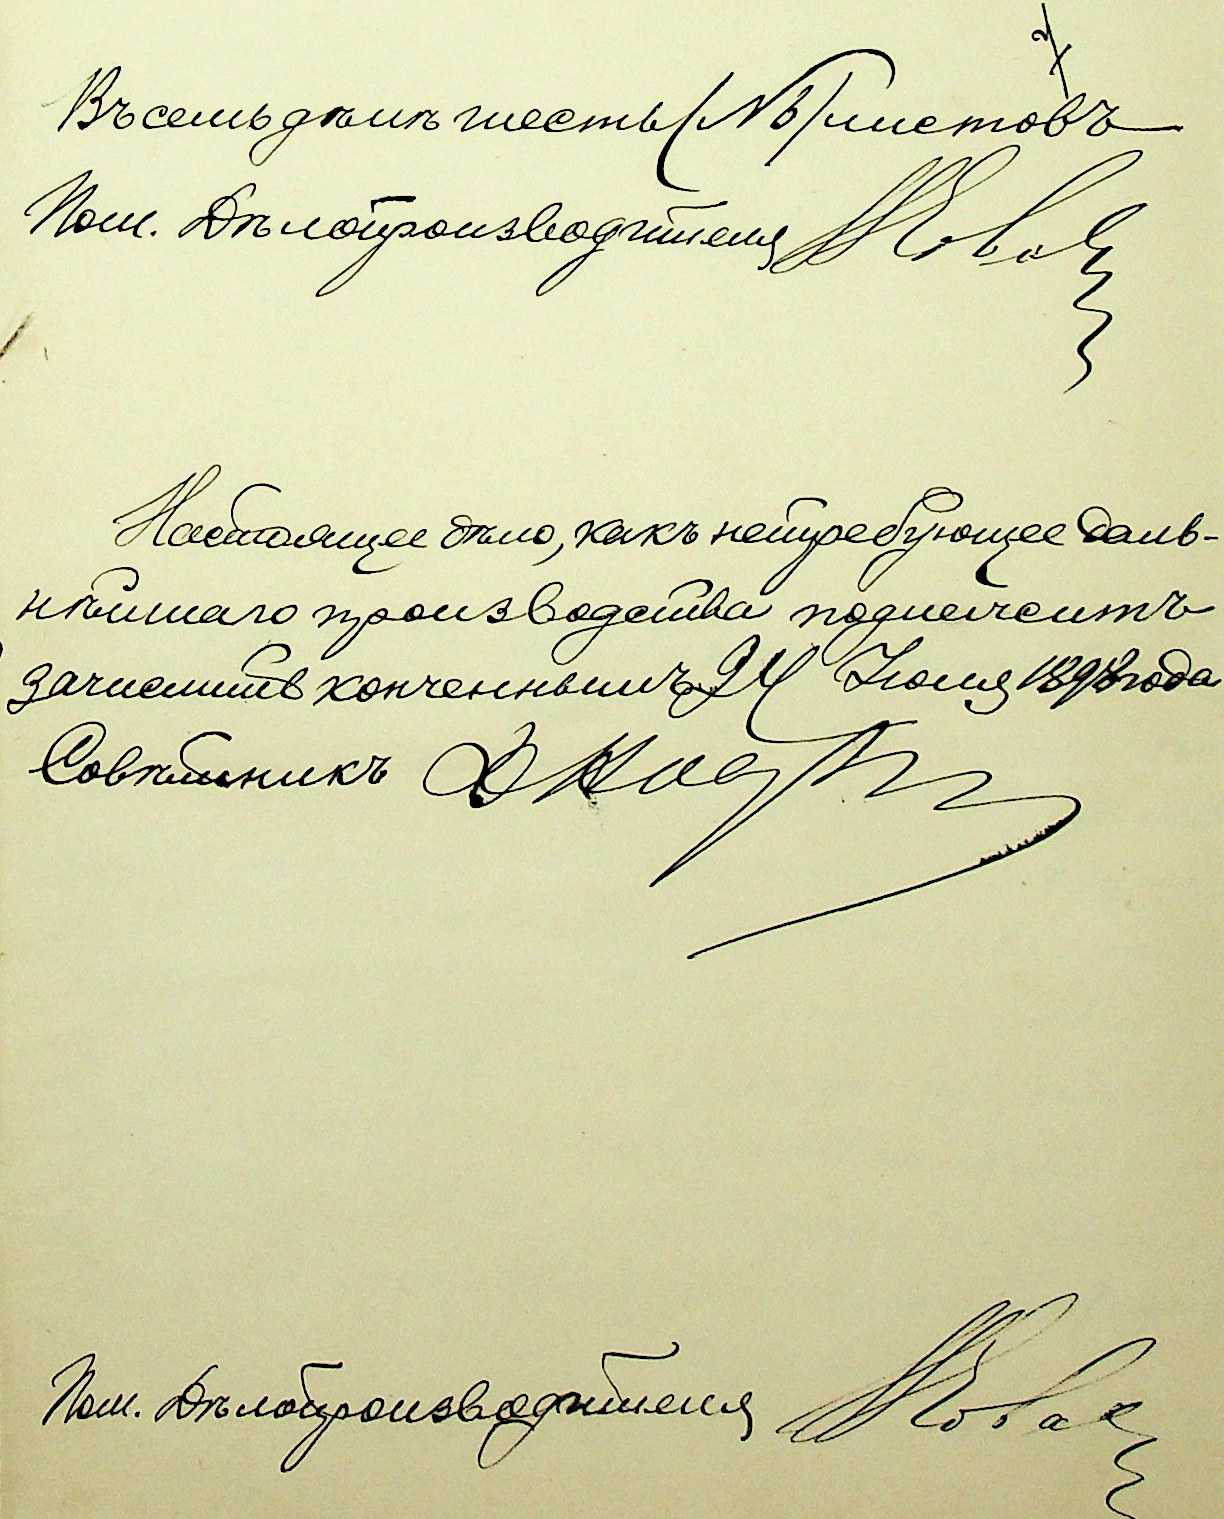 Въ семъ дѣлѣ шесть (№6) листовъ
Пом. Дѣлопроизводителя
Настоящее дѣло, какъ нетребующее даль-
нѣйшаго производства подлежитъ
зачислить конченнымъ, 24 Іюля 1898 года
Совѣтникъ
Пом. Дѣлопроизводителя